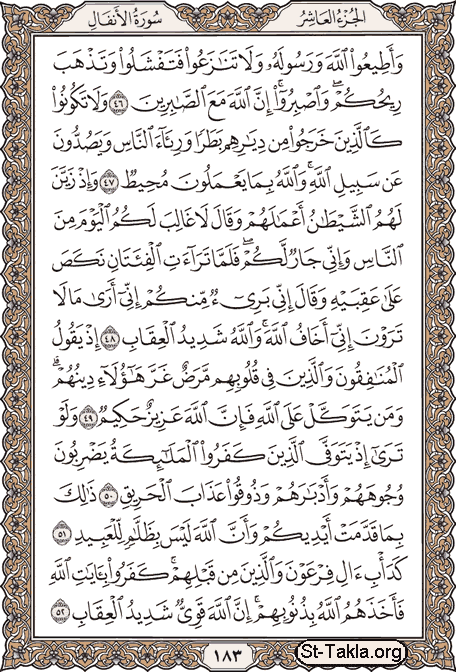 الجزء العاشر
سورة الأنفال
وَأَطِيعُوا۟ ٱللَّهَ وَرَسُولَهُۥ وَلَا تَنَٰزَعُوا۟ فَتَفْشَلُوا۟ وَتَذْهَبَ
رِيحُكُمْ ۖ وَٱصْبِرُوٓا۟ ۚ إِنَّ ٱللَّهَ مَعَ ٱلصَّٰبِرِينَ ٤٦ وَلَا تَكُونُوا۟
كَٱلَّذِينَ خَرَجُوا۟ مِن دِيَٰرِهِم بَطَرًا وَرِئَآءَ ٱلنَّاسِ وَيَصُدُّونَ
عَن سَبِيلِ ٱللَّهِ ۚ وَٱللَّهُ بِمَا يَعْمَلُونَ مُحِيطٌ ٤٧ وَإِذْ زَيَّنَ
لَهُمُ ٱلشَّيْطَٰنُ أَعْمَٰلَهُمْ وَقَالَ لَا غَالِبَ لَكُمُ ٱلْيَوْمَ مِنَ
ٱلنَّاسِ وَإِنِّى جَارٌ لَّكُمْ ۖ فَلَمَّا تَرَآءَتِ ٱلْفِئَتَانِ نَكَصَ
عَلَىٰ عَقِبَيْهِ وَقَالَ إِنِّى بَرِىٓءٌ مِّنكُمْ إِنِّىٓ أَرَىٰ مَا لَا
تَرَوْنَ إِنِّىٓ أَخَافُ ٱللَّهَ ۚ وَٱللَّهُ شَدِيدُ ٱلْعِقَابِ ٤٨ إِذْ يَقُولُ
ٱلْمُنَٰفِقُونَ وَٱلَّذِينَ فِى قُلُوبِهِم مَّرَضٌ غَرَّ هَٰٓؤُلَآءِ دِينُهُمْ ۗ
وَمَن يَتَوَكَّلْ عَلَى ٱللَّهِ فَإِنَّ ٱللَّهَ عَزِيزٌ حَكِيمٌ ٤٩ وَلَوْ
تَرَىٰٓ إِذْ يَتَوَفَّى ٱلَّذِينَ كَفَرُوا۟ ٱلْمَلَٰٓئِكَةُ يَضْرِبُونَ
وُجُوهَهُمْ وَأَدْبَٰرَهُمْ وَذُوقُوا۟ عَذَابَ ٱلْحَرِيقِ ٥٠ ذَٰلِكَ
بِمَا قَدَّمَتْ أَيْدِيكُمْ وَأَنَّ ٱللَّهَ لَيْسَ بِظَلَّٰمٍ لِّلْعَبِيدِ ٥١
كَدَأْبِ ءَالِ فِرْعَوْنَ وَٱلَّذِينَ مِن قَبْلِهِمْ ۚ كَفَرُوا۟ بِـَٔايَٰتِ ٱللَّهِ
فَأَخَذَهُمُ ٱللَّهُ بِذُنُوبِهِمْ ۗ إِنَّ ٱللَّهَ قَوِىٌّ شَدِيدُ ٱلْعِقَابِ ٥٢
١٨٣
St-Takla.org